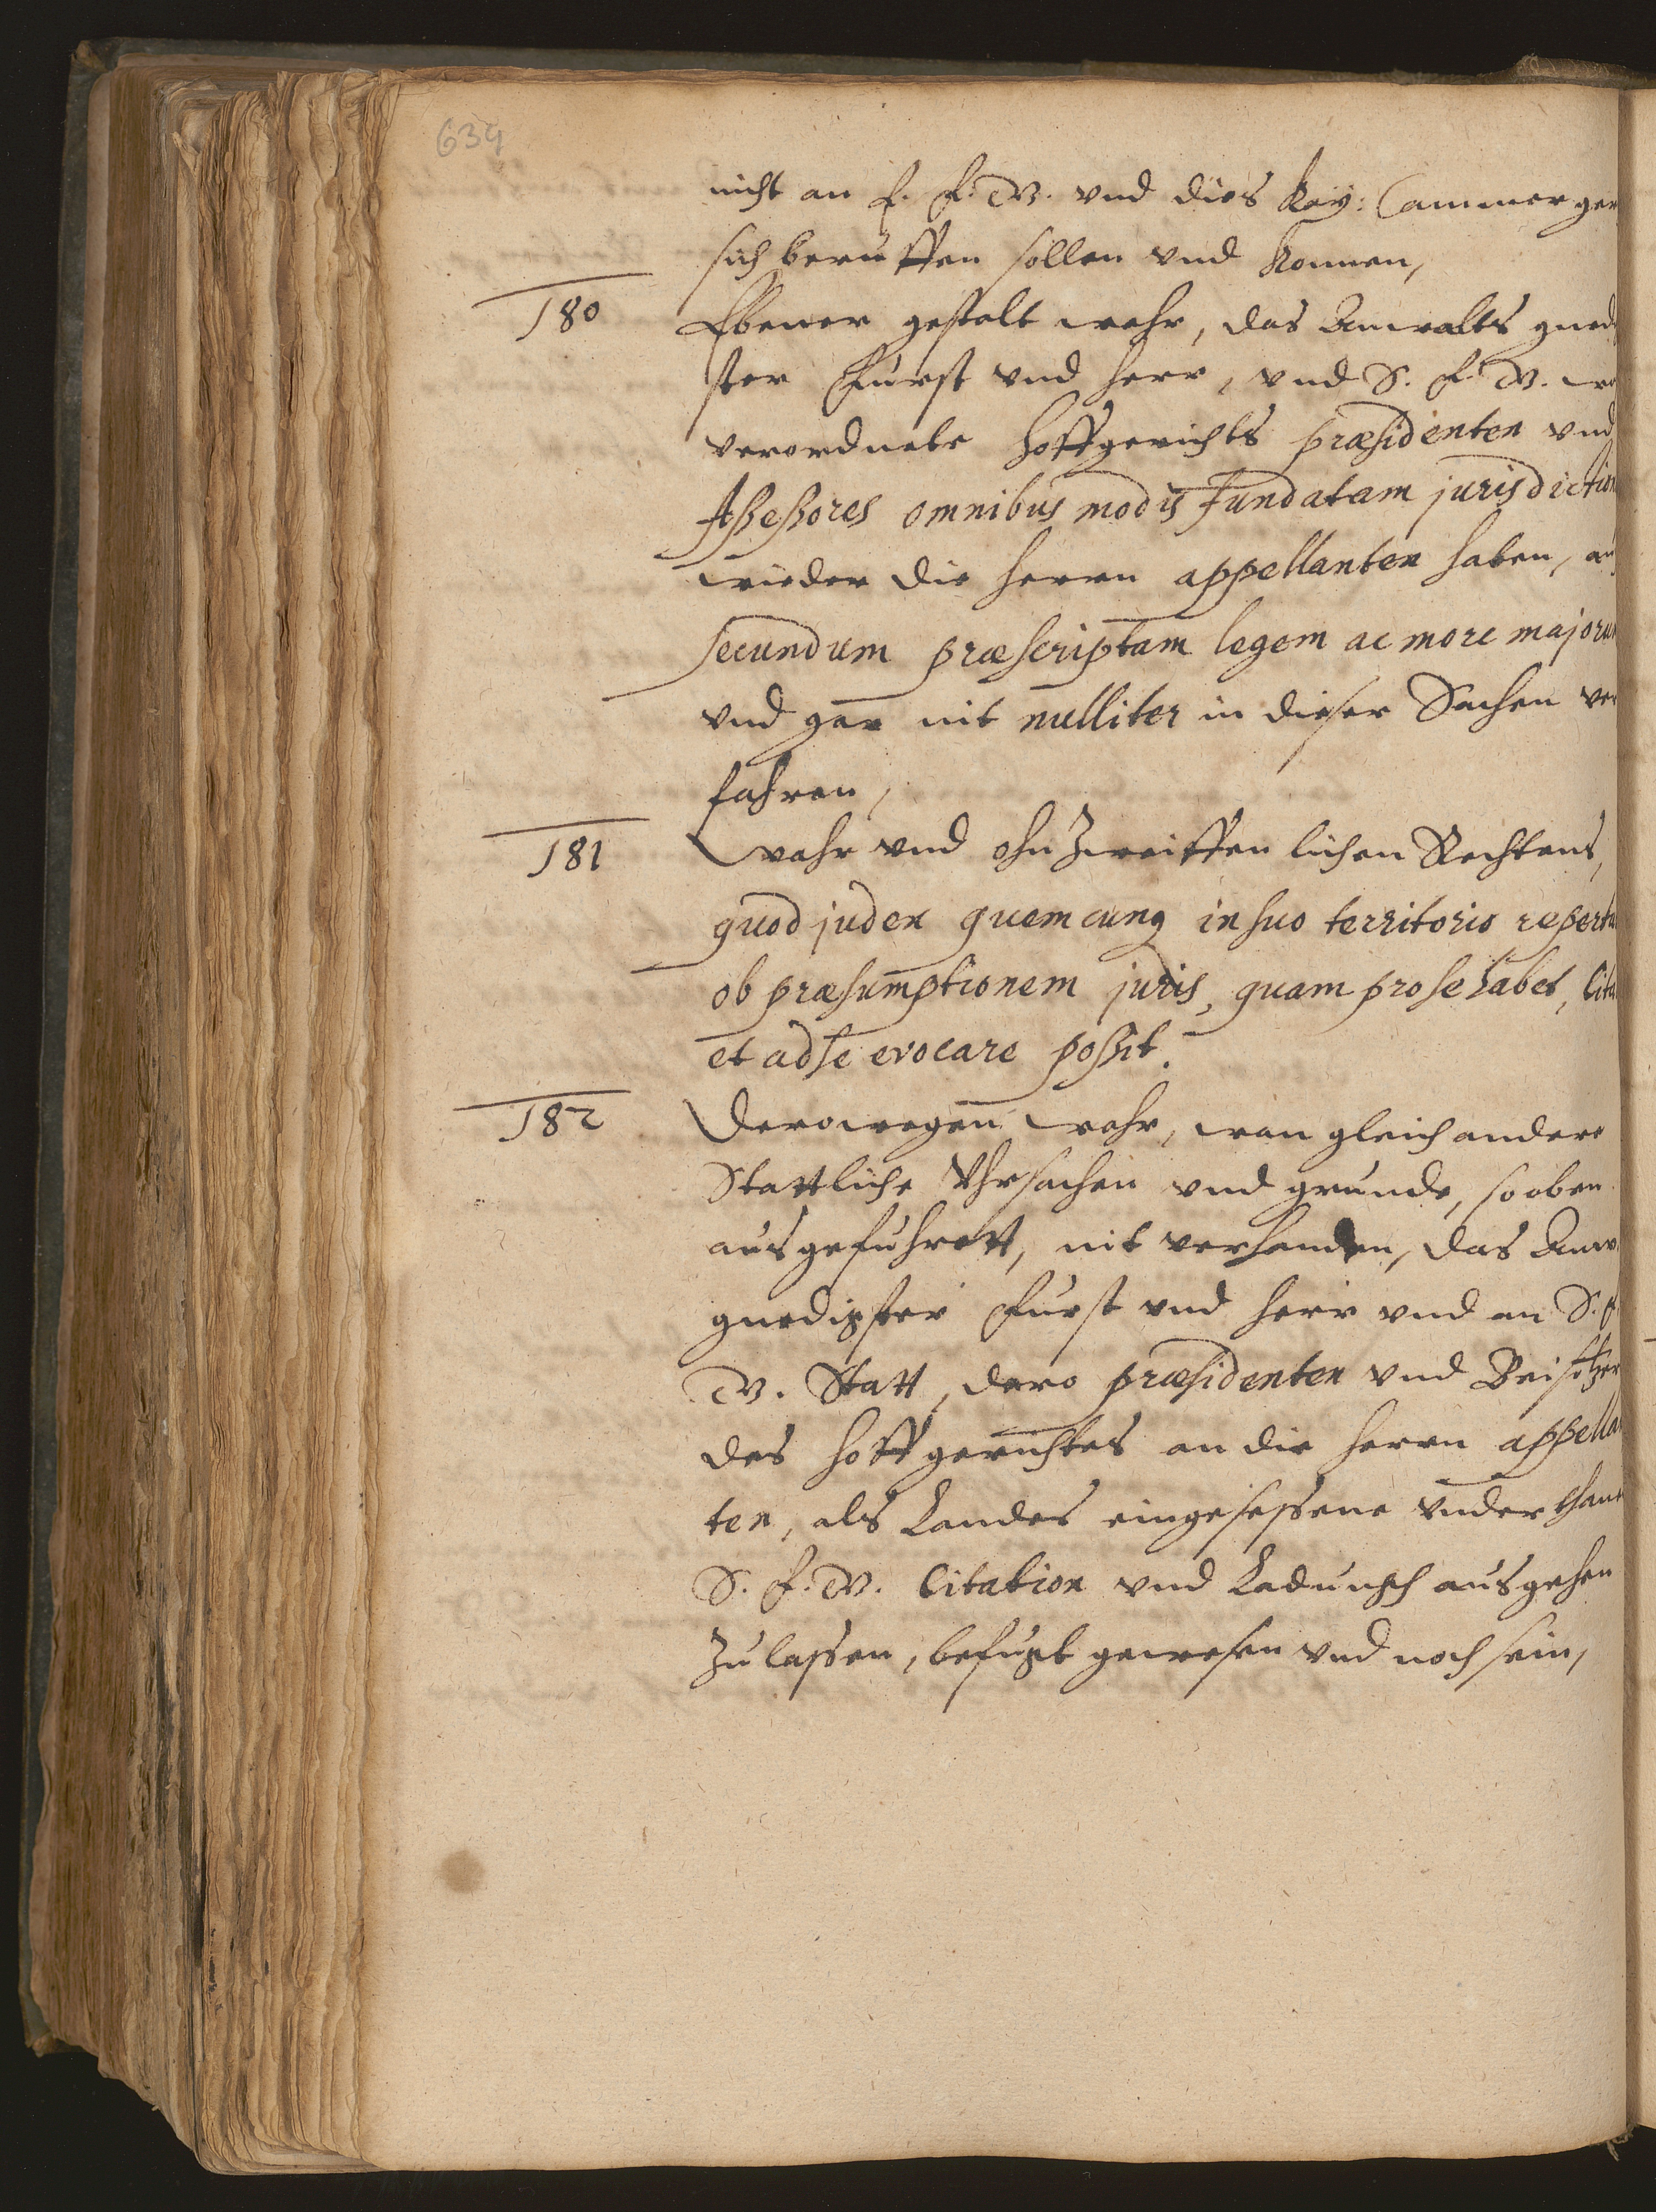 639
nicht an E. F. W. vnd dies Key: Cammer ger
sich beruffen sollen vnd konnen,
180 Ebener gestalt wahr, das Anwalts gned
ster Furst vnd herr, vnd S. F. W.
verordnete hoffgerichts præsidenten vnd
Aßeßores omnibus modis fundatam jurisdiction
wieder die herrn appellanten haben,
secundum præscriptam legem ac more majorum
vnd gar nit nulliter in dieser Sachen ver
fahren,
181 Wahr vnd ohn Zweiffen lichen Rechtens,
quod judex quemcunq in suo territorio repertu
ob præsumptionem juris, quam pro se habet, Cita
et ad se evocare poßit.
182 Derowegen wahr, wan gleich andere
Stattliche Vhrsachen vnd grunde, so oben
ausgefuhrett, nit verhanden, das Anw
gnedigster Furst vnd herr vnd an S. F.
W. Statt, dero præsidenten vnd Beisitzer
des hoffgerichtes an die herrn appellan
ten, als Landes eingesessene vnderthane
S. F. W. Citation vnd Ladungh ausgehen
Zu lassen, befugt gewesen vnd noch sein,